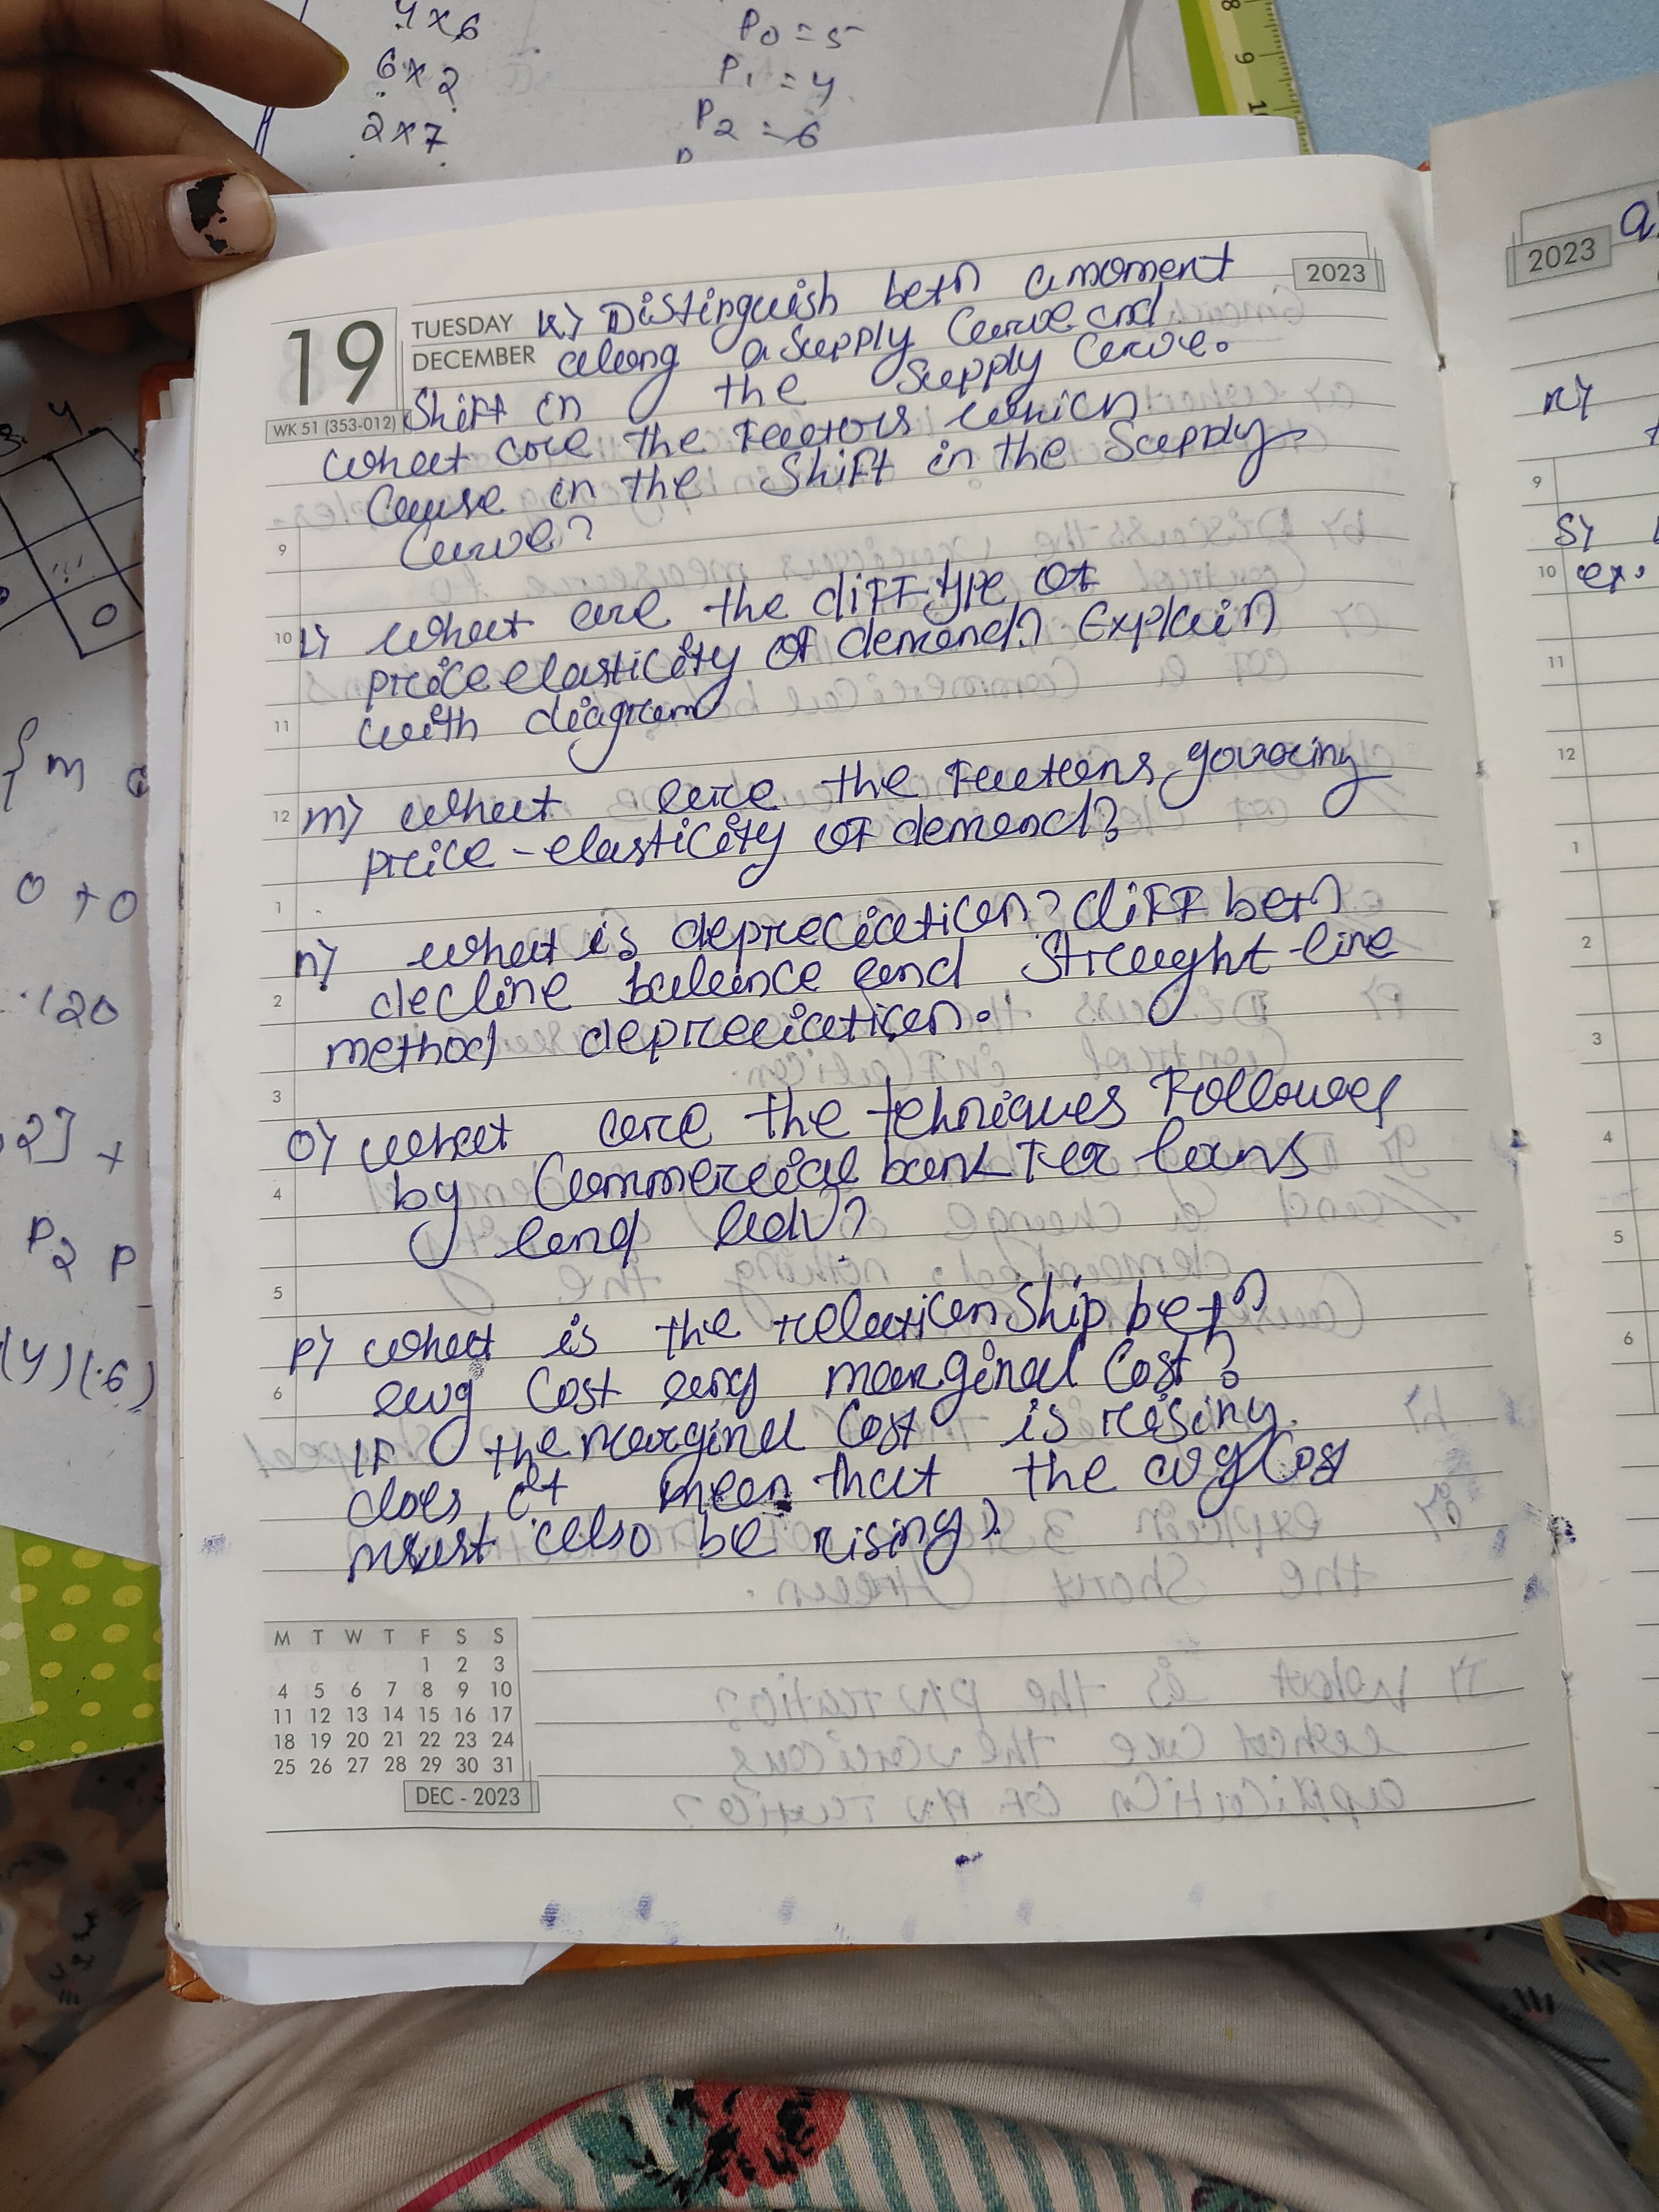 4 x 6
6 x 2
2 x 7
P0 = 5
P1 = 4
P2 = 6
8
9
10
2023
19
TUESDAY
DECEMBER
WK 51 (353-012)
K) Distinguish betn a moment
along a supply curve and
shift in the supply curve.
What are the factors which
cause in the shift in the supply
curve?
L) What are the diff type of
price elasticity of demand? Explain
with diagram
m) What are the factors
price-elasticity of demand?
n) What is depreciation? diff betn
decline balance and straight-line
method depreciation.
o) What are the tehniques followed
by commercial bank for loans
and adv?
p) What is the relationship betn
avg cost and marginal cost?
If the marginal cost is rising
does it mean that the avg cost
must also be rising?
9
10
11
12
1
2
3
4
5
6
M T W T F S S
1 2 3
4 5 6 7 8 9 10
11 12 13 14 15 16 17
18 19 20 21 22 23 24
25 26 27 28 29 30 31
DEC - 2023
2023
9
S)
10
11
12
1
2
3
4
5
6
0
{ m
0 + 0
120
2] +
P2 P
(4) (.6)